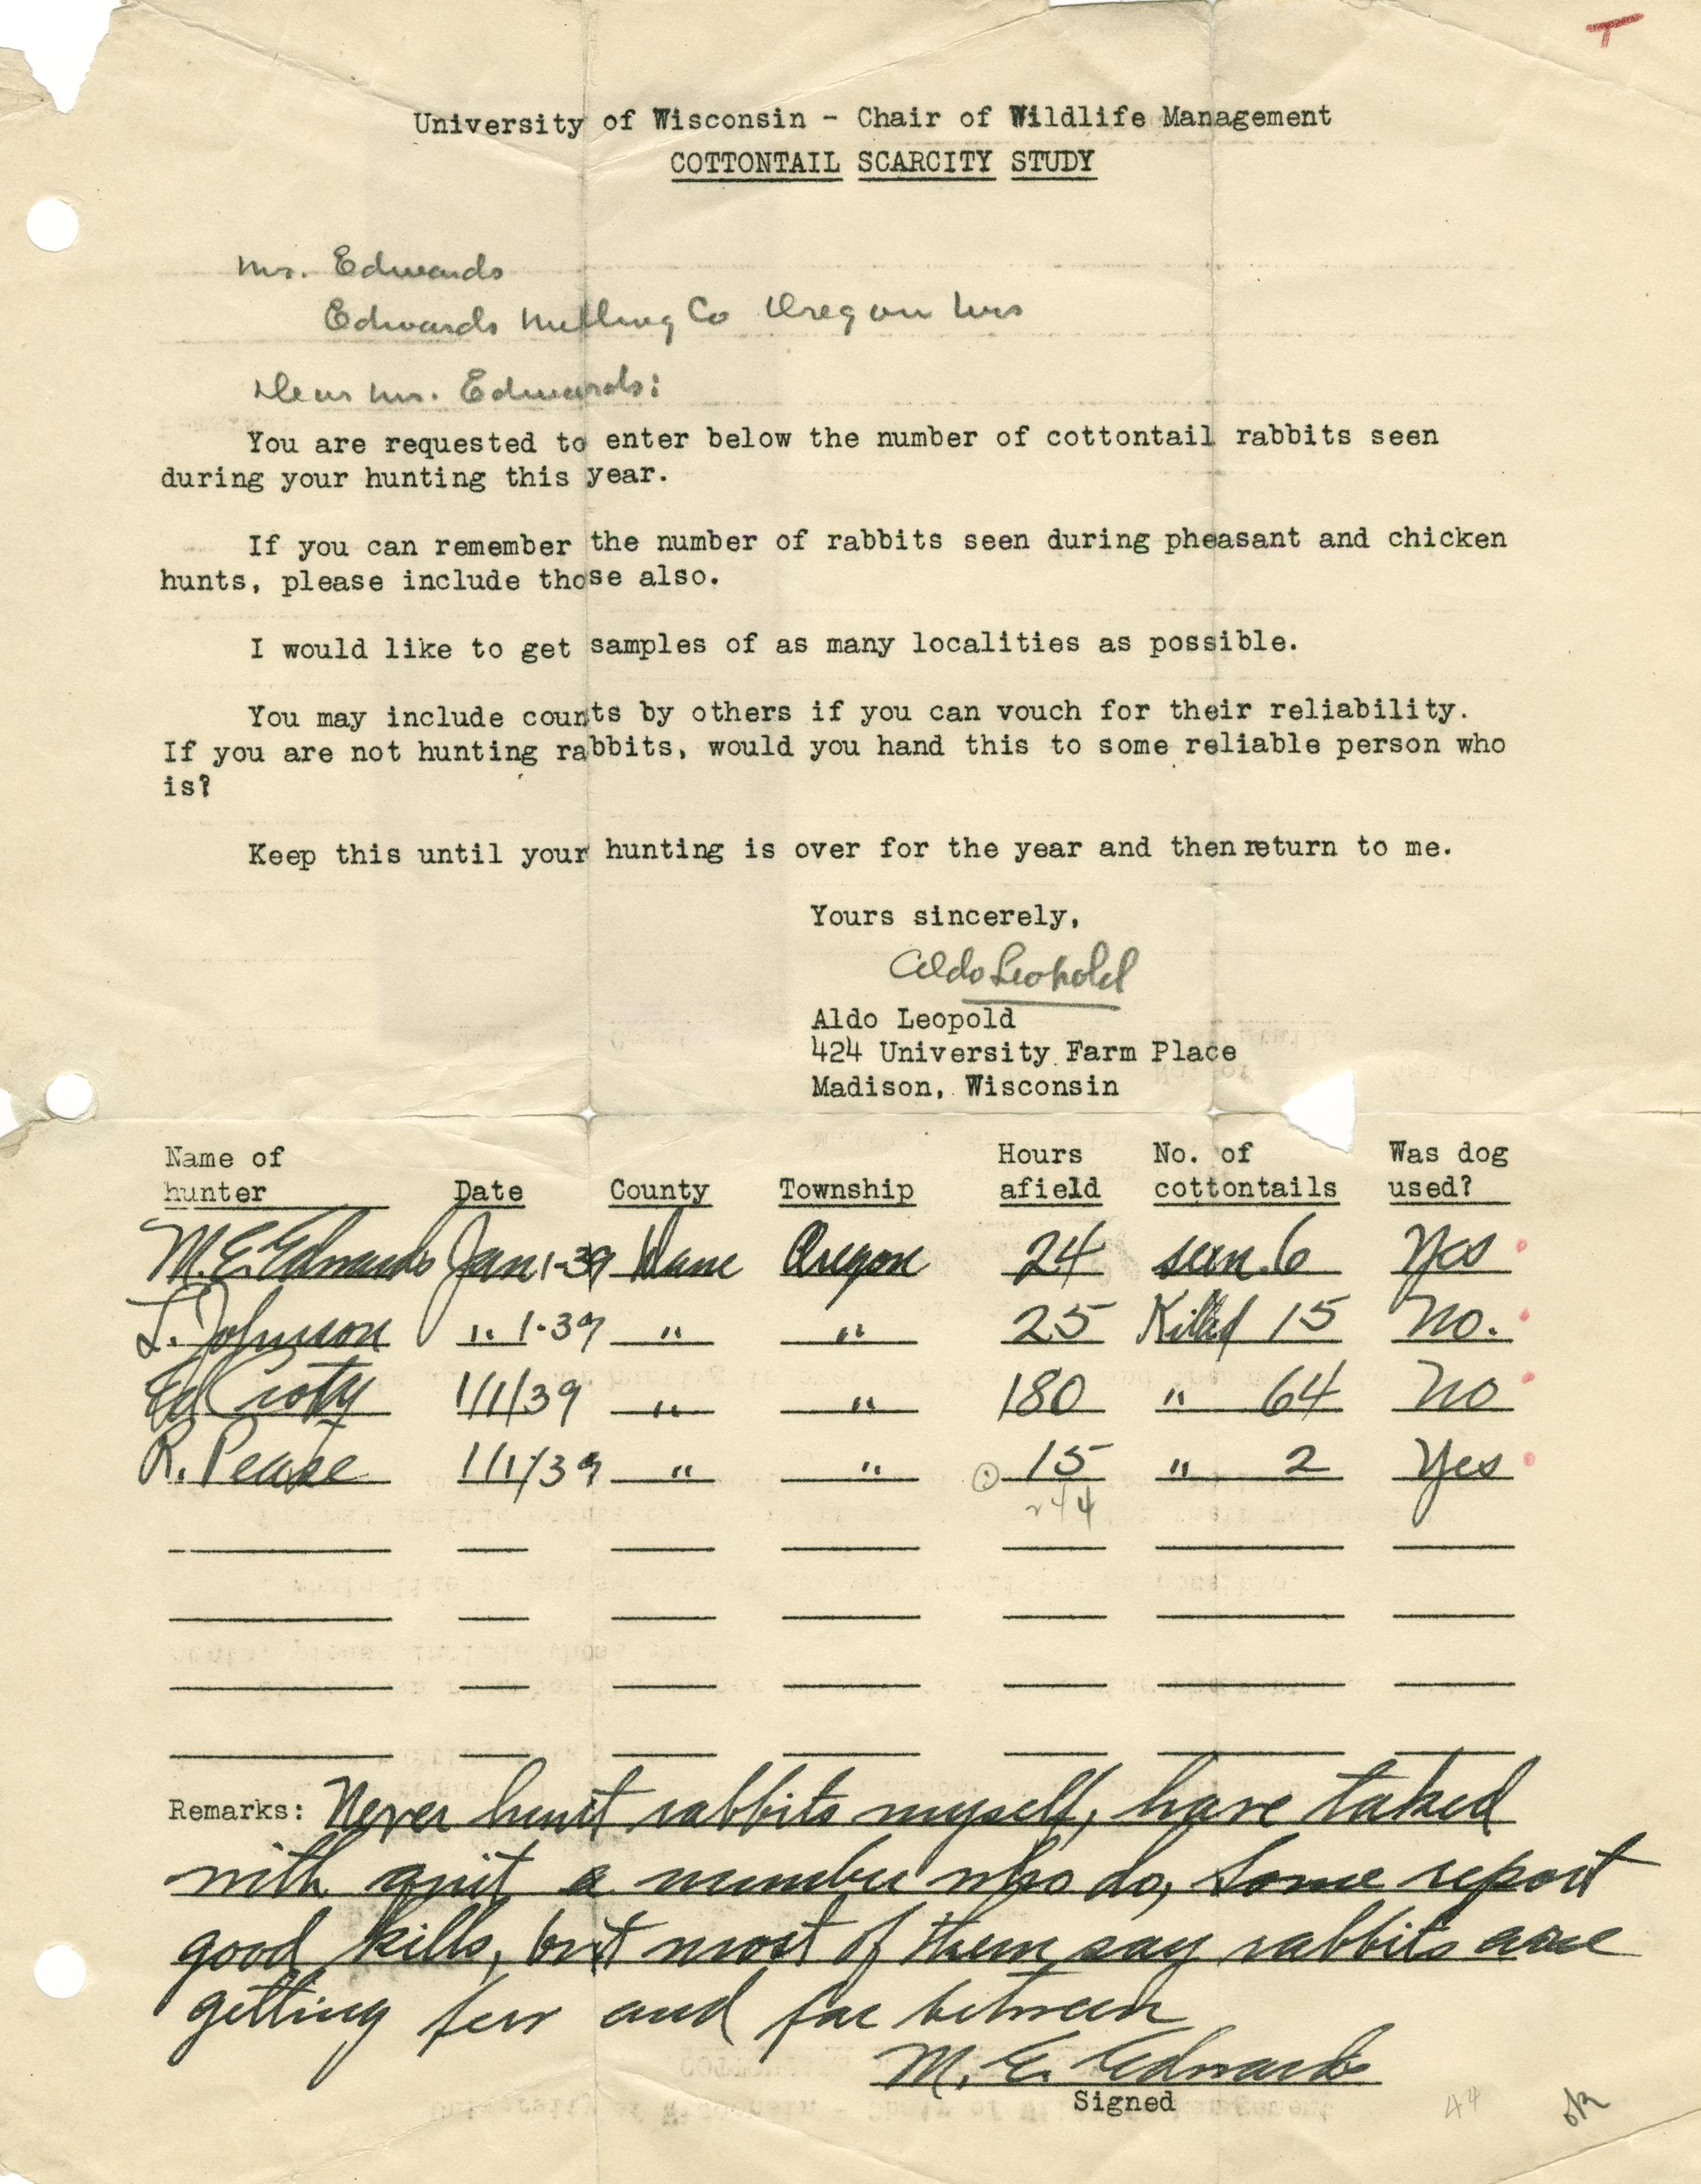 T
University of Wisconsin - Chair of Wildlife Management
COTTONTAIL SCARCITY STUDY
Mr. Edwards
Edwards Milling Co Oregon Wis
Dear Mr. Edwards:
You are requested to enter below the number of cottontail rabbits seen
during your hunting this year.
If you can remember the number of rabbits seen during pheasant and chicken
hunts, please include those also.
I would like to get samples of as many localities as possible.
You may include counts by others if you can vouch for their reliability.
If you are not hunting rabbits, would you hand this to some reliable person who
is?
Keep this until your hunting is over for the year and then return to me.
Yours sincerely,
Aldo Leopold
Aldo Leopold
424 University Farm Place
Madison, Wisconsin
Name of Hours No. of Was dog
hunter Date County Township afield cottontails used?
M.E. Edwards Jan 1-39 Dane Oregon 24 seen 6 Yes
L. Johnson " 1-39 " " 25 Killed 15 No.
Ed Croty 1/1/39 " " 180 " 64 No
R. Pease 1/1/39 " " 15 " 2 Yes
244
Remarks: Never hunt rabbits myself, have talked
with quit a number who do, Some report
good kills, but most of them say rabbits are
getting few and far between
M. E. Edwards
Signed
44 OK